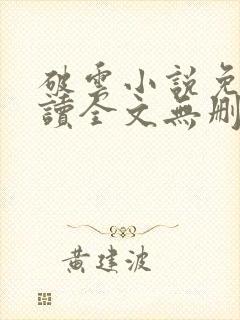 破雲小説免
讀全文無刪
黃建波